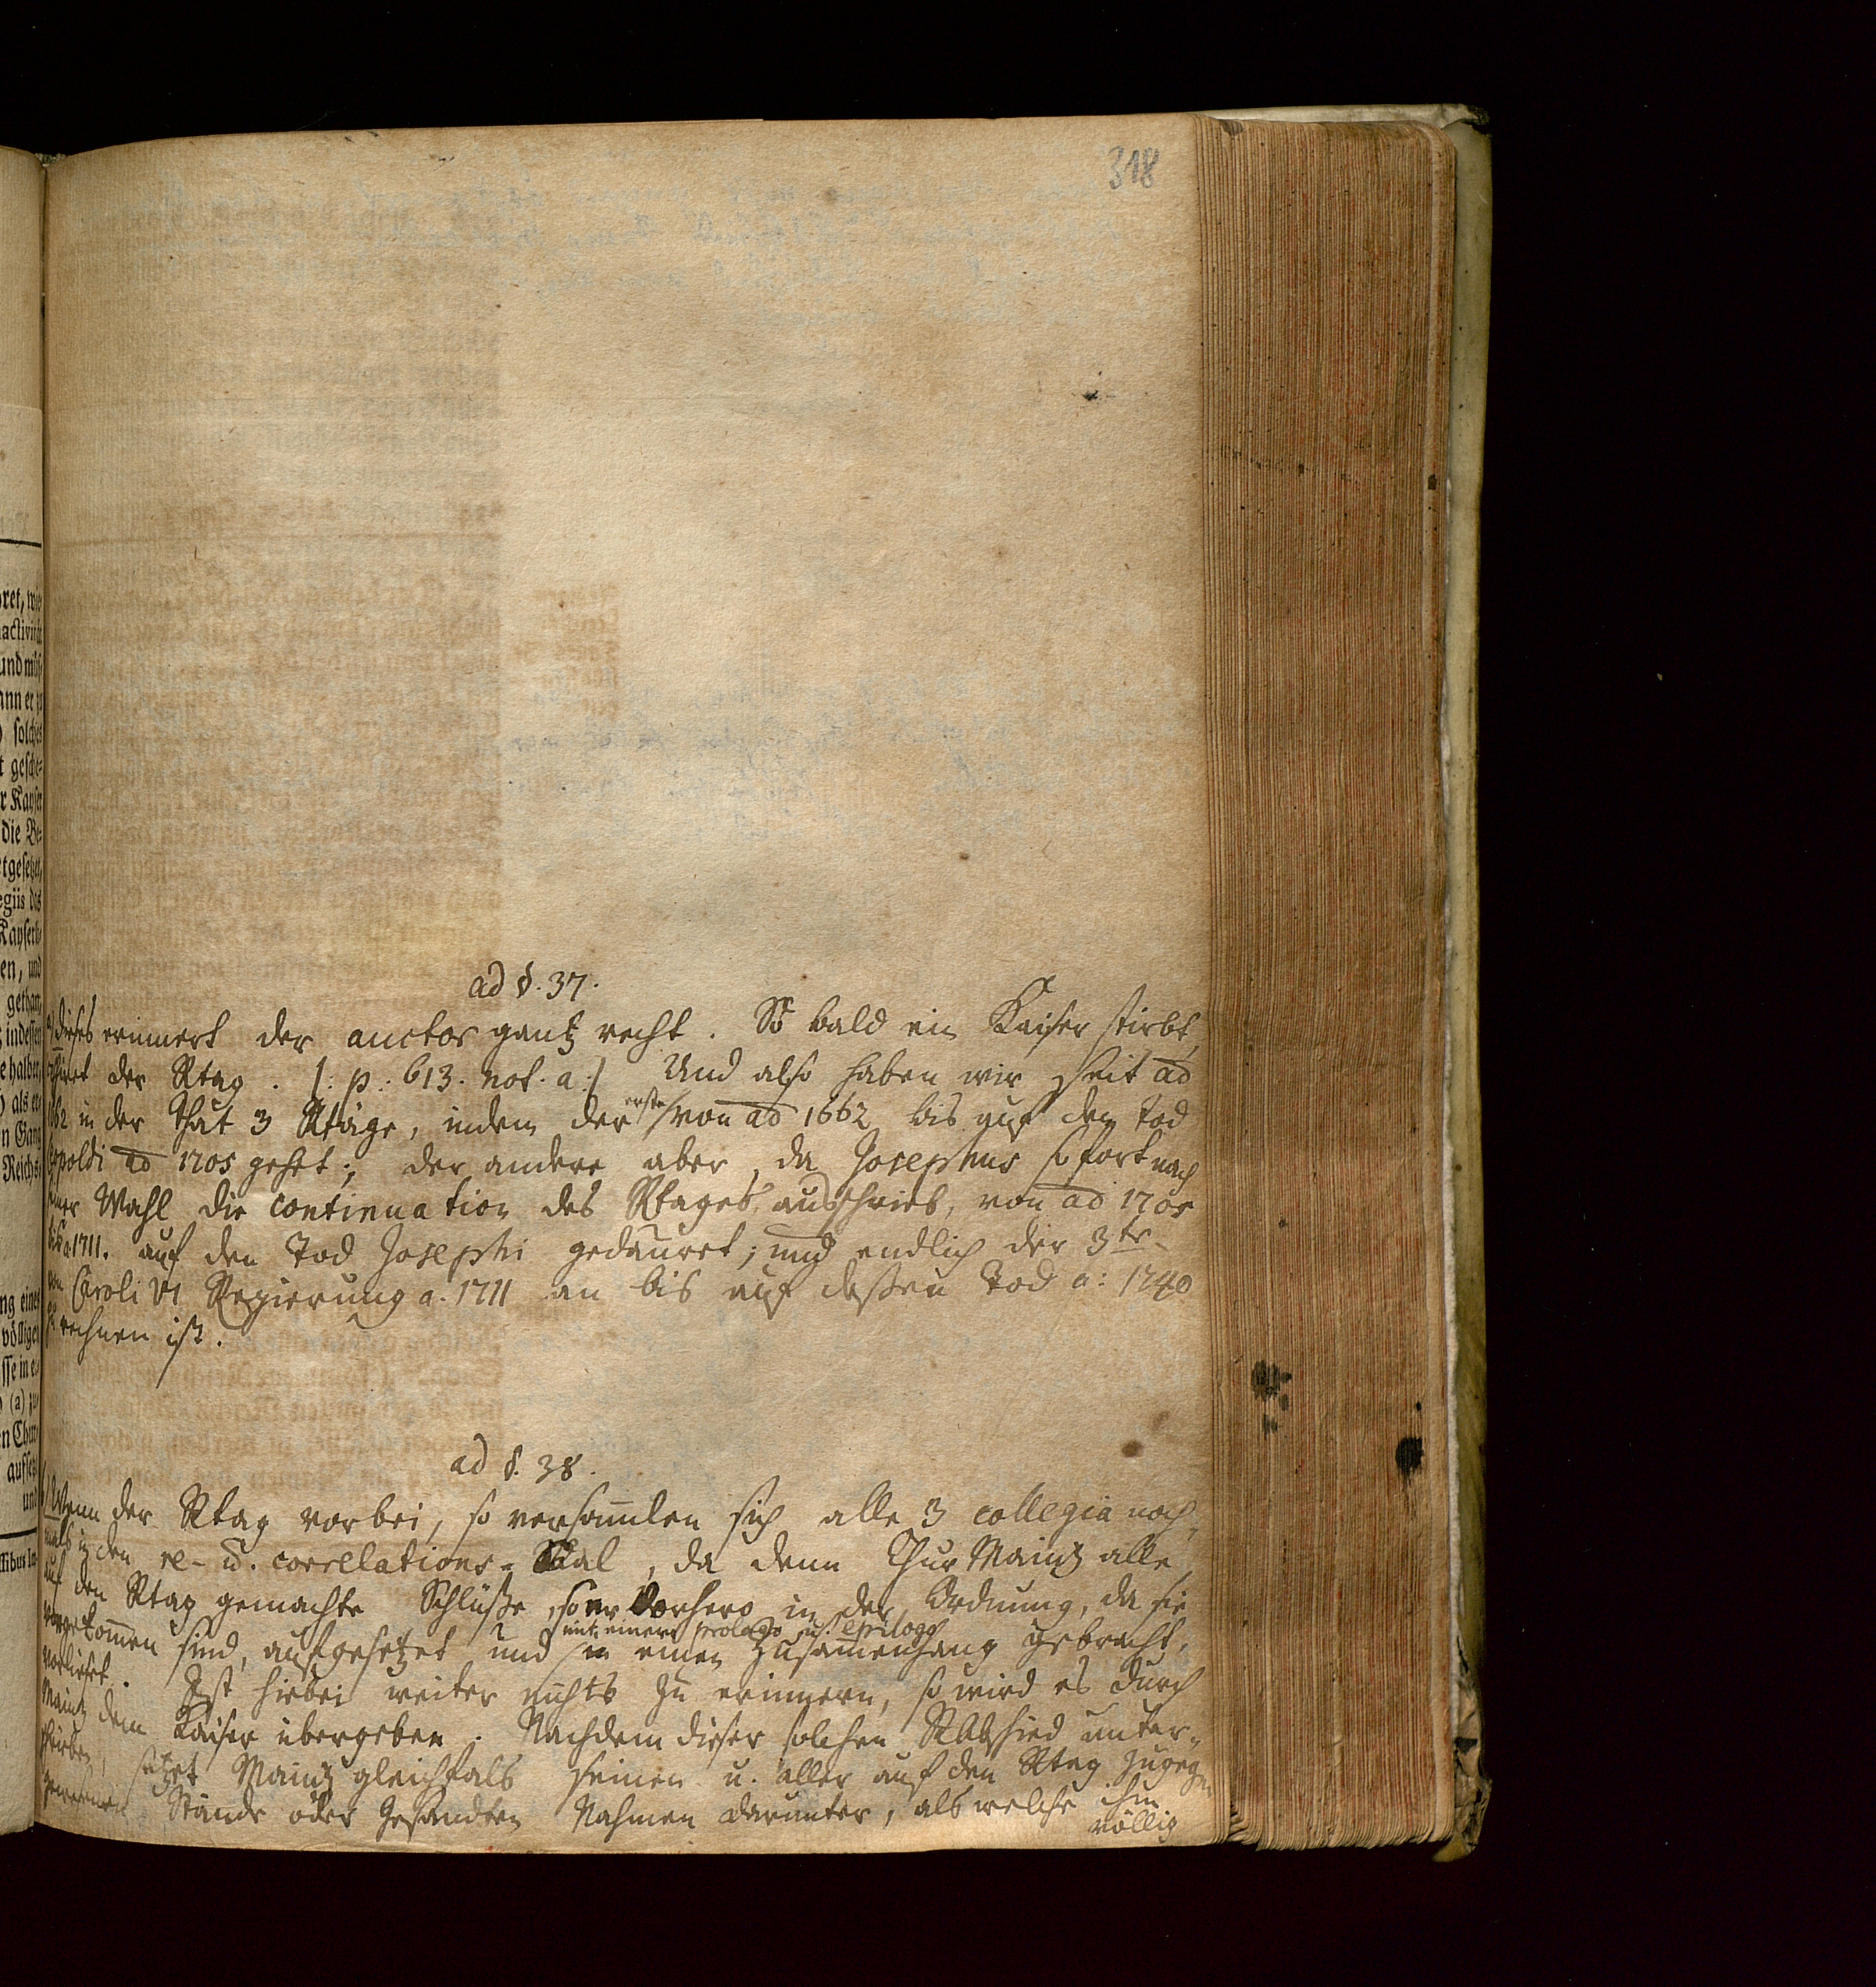 318
ret, wo
activi
und müß
ann er
solches
gesche-
r Kayser
die Be-
tgesetzt,
egiis das
Kayserl.
en, und
gethan,
indessen
e halber,
als er
n Gang
Reichs-
ng eines
völligen
sse in e
(a) zu
n Chur
aufse
und
ad §. 37.
dieses erinnert der auctor gantz recht. So bald ein Kaiser stirbt,
der Rtag. /: p: 613. not. a:/ Und also haben wir seit ao
662 in der That 3 Rtäge, indem der erste von ao 1662 bis auf den Tod
Leopoldi ao 1705 gehet; der andere aber, da Josephus sofort nach
seiner Wahl die continuation des Rtages ausschrieb, von ao 1705
bis a. 1711. auf den Tod Josephi gedauret; und endlich der 3te
von Caroli VI Regierung a. 1711 an bis auf deßen Tod a: 1740
zu rechnen ist.
ad §. 38.
Wenn der Rtag vorbei, so versam̄len sich alle 3 collegia noch-
mals in den re- u. correlations-Saal, da denn Chur Maintz alle
auf den Rtag gemachte Schlüße, so er vorhero in der Ordnung, da sie
vorgekom̄en sind, aufgesetzet und mit einem prologo u. epilogo in einen Zusam̄enhang gebracht,
vorlieset. Ist hiebei weiter nichts zu erinnern, so wird es durch
Maintz dem Kaiser übergeben. Nachdem dieser solchen RAbschied unter-
schrieben, setzet Maintz gleichfals seinen u. aller auf den Rtag zugegen
gewesenen Stände oder Gesandten Nahmen darunter, als welche ihm
völlig